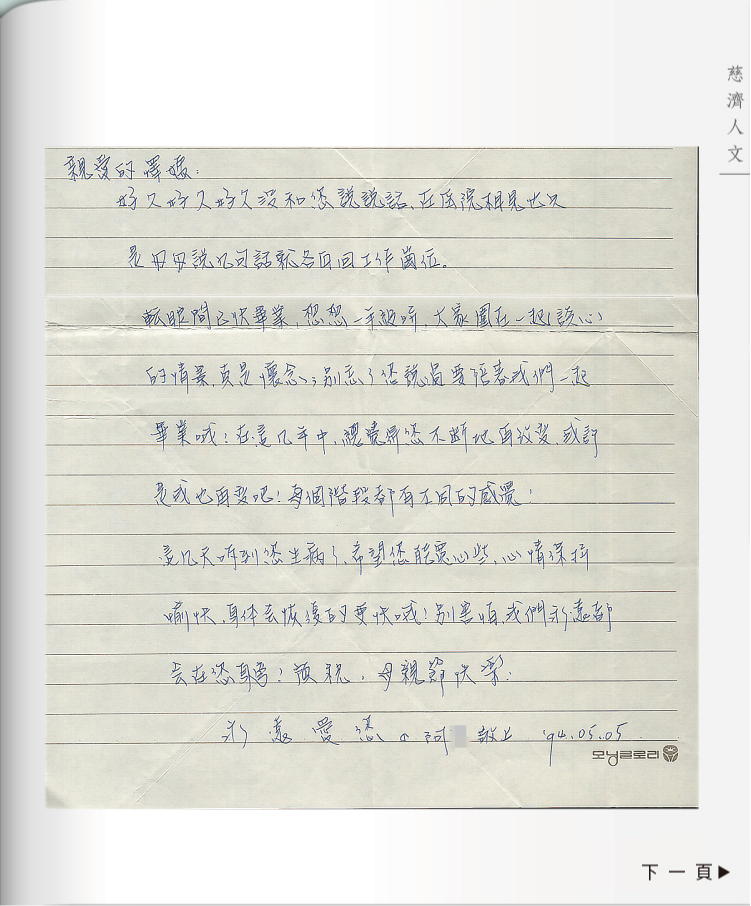 慈濟人文
親愛的懿媽：
好久好久好久沒和您說說話、在医院相見也只
是匆匆說幾句話就各自回工作崗位。
轉眼間已快畢業，想想一年級時，大家圍在一起談心
的情景，真是懷念；別忘了您說過要陪著我們一起
畢業哦！在這几年中，總覺得您不断地再改变，或許
是我也再变吧！每個階段都有不同的感覺！
這几天听到您生病了，希望您能寬心些，心情保持
愉快，身体会恢復的更快哦！別害怕，我們永遠都
会在您身旁！預祝，母親節快樂！
永遠愛您の阿 敬上 '94.05.05
모닝글로리
下一頁▶